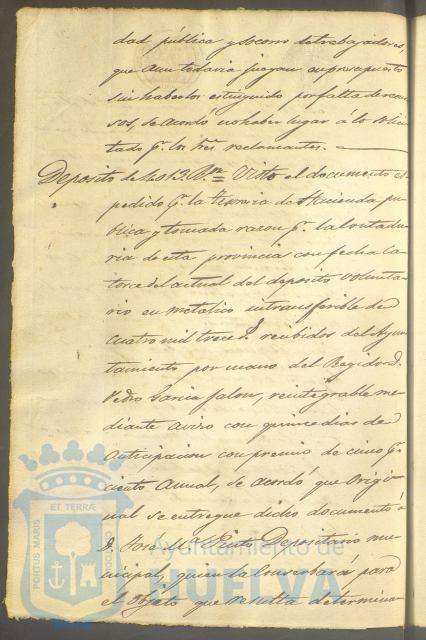 dad pública y socorro de trabajadores,
que aun todavia juegan en presupuesto
sin haberlos estinguido por falta de recur
sos, se acordó no haber lugar á lo solici
tado pr. los Sres reclamantes.
Deposito de 4013 Rn. Visto el documento es
pedido pr. la Tesoreria de Hacienda pu
blica y tomada razon pr. la Contadu
ria de esta provincia con fecha ca
torce del actual del deposito volunta
rio en metalico intransferible de
cuatro mil trece rs. recibidos del Ayun
tamiento por mano del Regidor D.
Pedro Garcia Jalon, reintegrable me
diante aviso con quince dias de
anticipacion con premio de cinco pr.
ciento anual, se acordó que origi
nal se entregue dicho documento á
D. José Mª Pinto Depositario mu
nicipal, quien la conserbará para
el objeto que resulta determina
Ayuntamiento de
HUELVA
ET TERRÆ
PORTUS MARIS
CUSTODIA